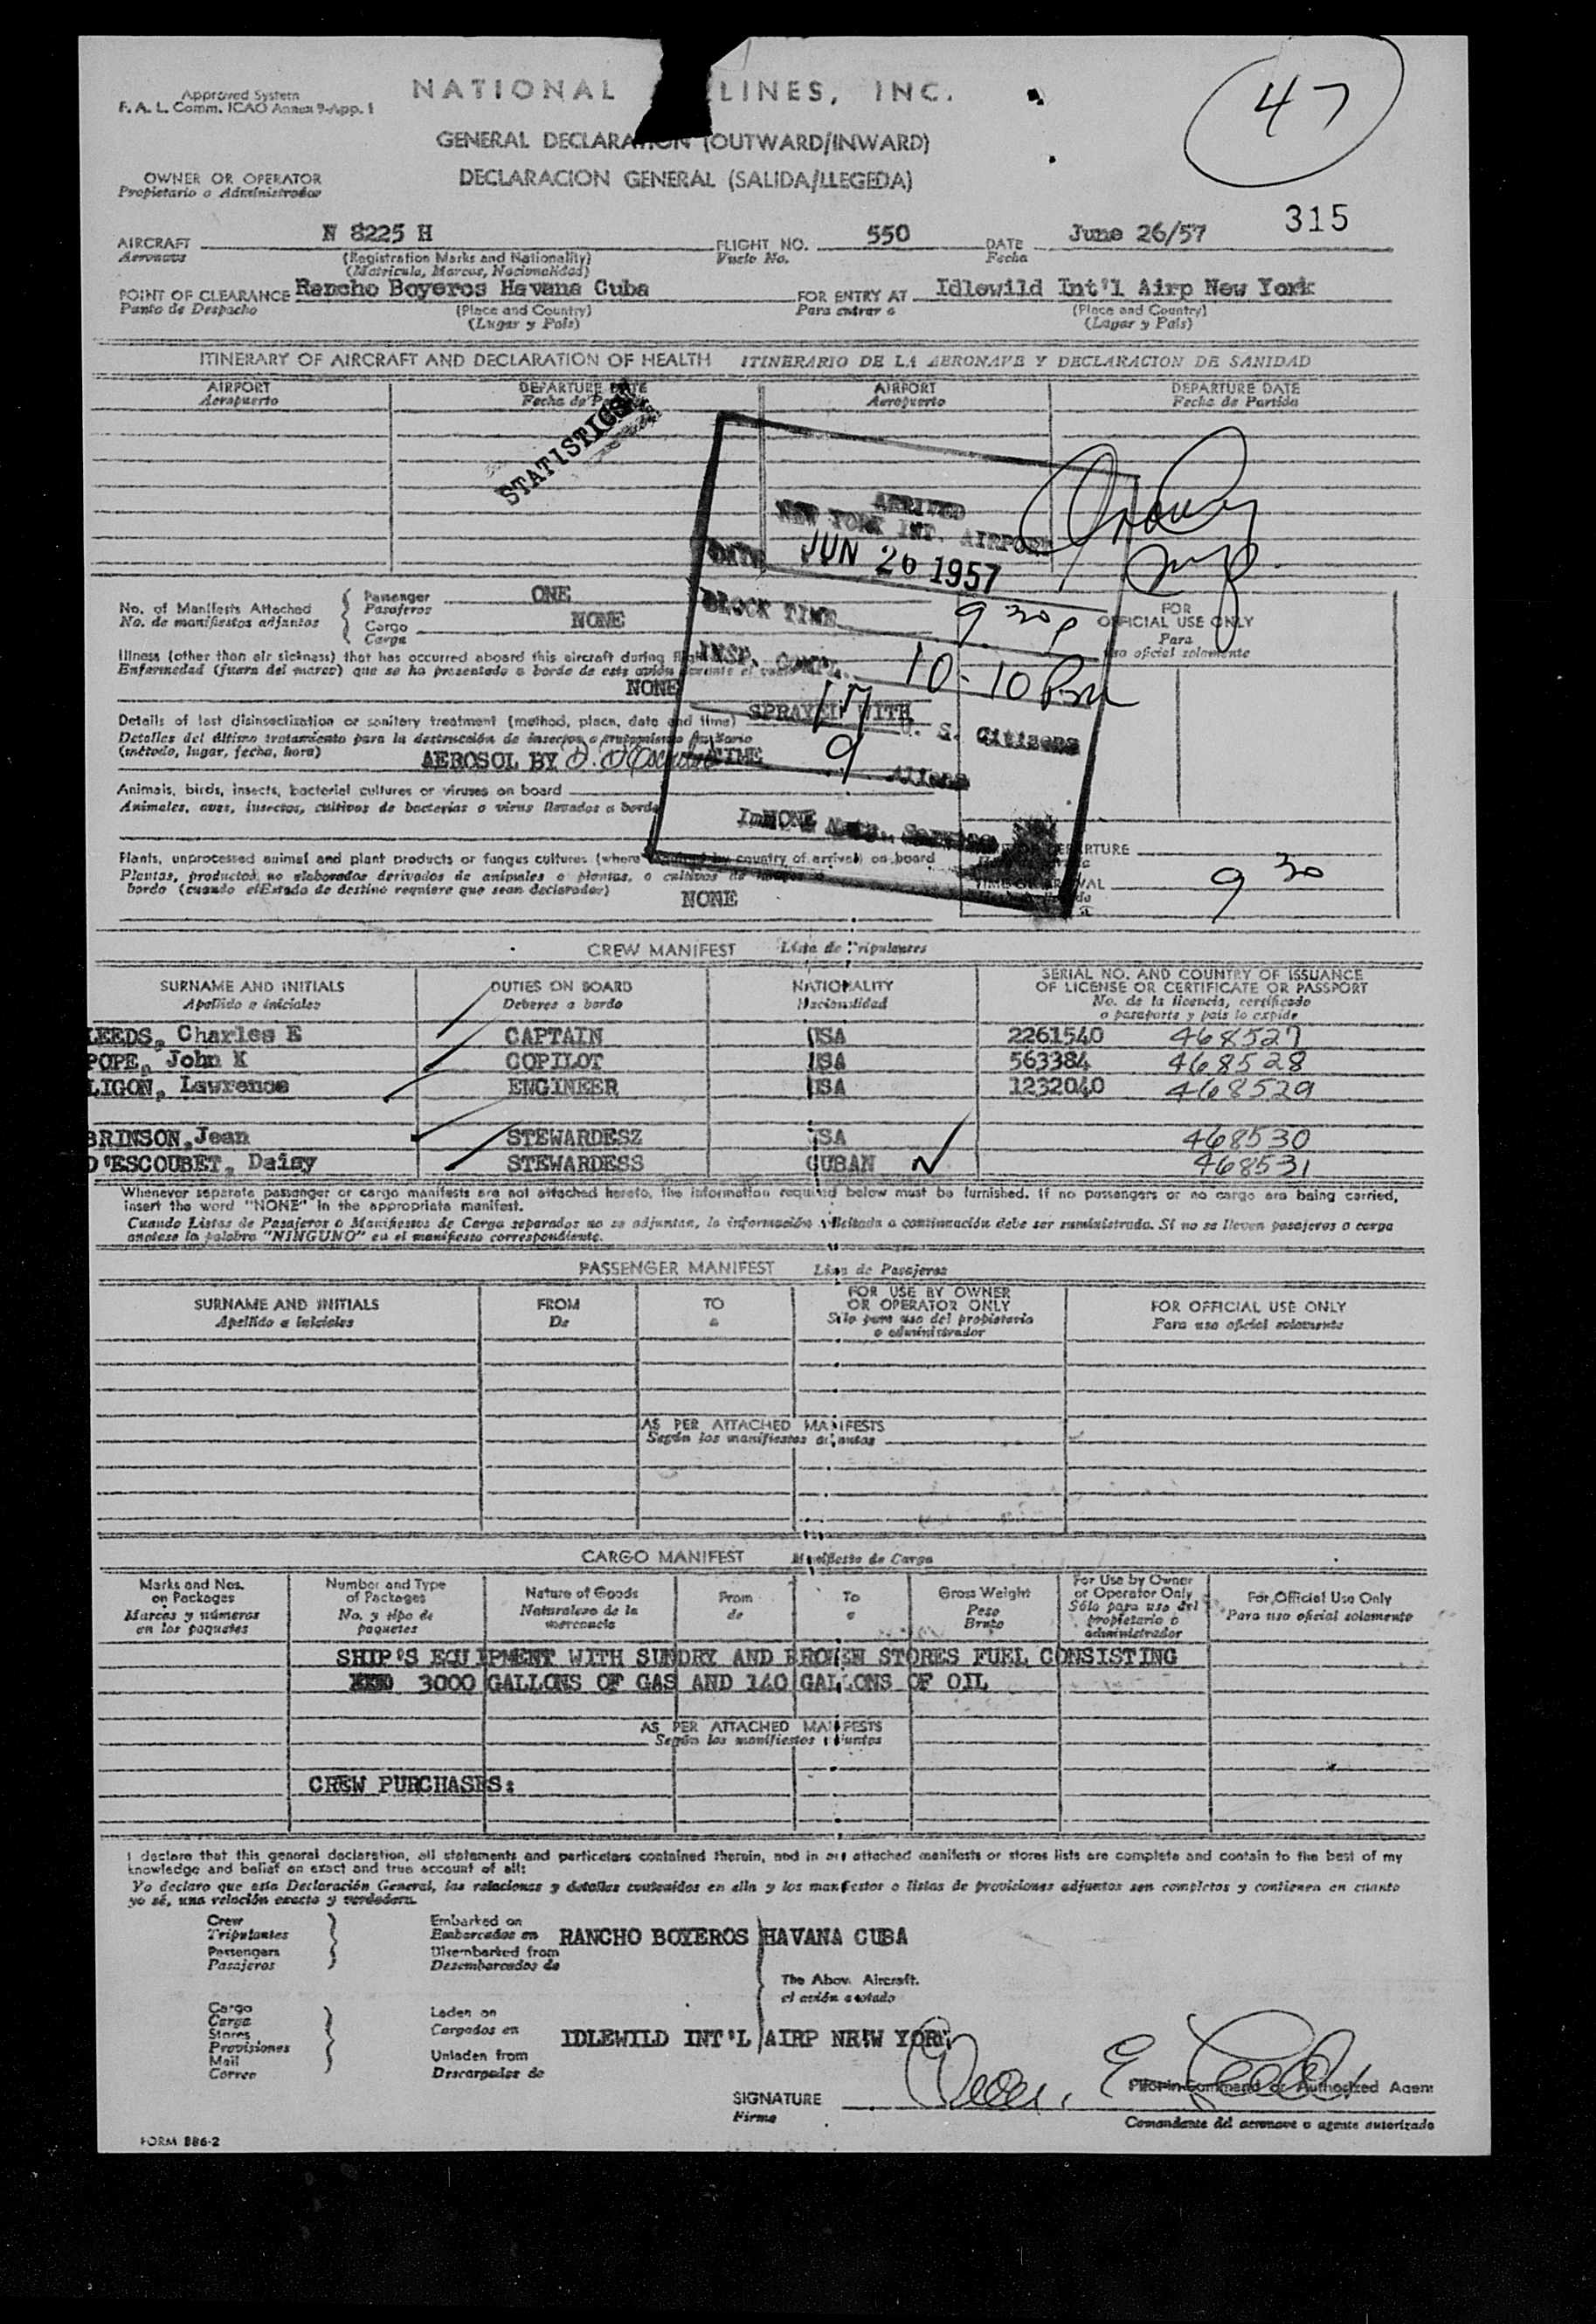 Approved System
F. A. L. Comm. ICAO Annex 9-App. 1
NATIONAL LINES, INC.
47
GENERAL DECLARATION (OUTWARD/INWARD)
DECLARACION GENERAL (SALIDA/LLEGEDA)
OWNER OR OPERATOR
Propietario o Administrador
315
AIRCRAFT N 8225 H FLIGHT NO. 550 DATE June 26/57
Aeronave (Registration Marks and Nationality) Vuelo No. Fecha
(Matricula, Marcas, Nacionalidad)
POINT OF CLEARANCE Rancho Boyeros Havana Cuba FOR ENTRY AT Idlewild Int'l Airp New York
Punto de Despacho (Place and Country) Para entrar a (Place and Country)
(Lugar y País) (Lugar y País)
ITINERARY OF AIRCRAFT AND DECLARATION OF HEALTH ITINERARIO DE LA AERONAVE Y DECLARACION DE SANIDAD
AIRPORT DEPARTURE DATE AIRPORT DEPARTURE DATE
Aeropuerto Fecha de Aeropuerto Fecha de Partida
STATISTICS
ARRIVED
NEW YORK INT. AIRPORT
DATE JUN 26 1957
BLOCK TIME 9 30 p
INSP. COMPL. 10-10 Pm
17 U. S. Citizens
9 Aliens
No. of Manifests Attached Passenger ONE
No. de manifiestos adjuntos Pasajeros
Cargo NONE
Carga
FOR
OFFICIAL USE ONLY
Para
uso oficial solamente
Illness (other than air sickness) that has occurred aboard this aircraft during flight
Enfermedad (fuera del mareo) que se ha presentado a bordo de este avión durante el
NONE
Details of last disinsectization or sanitary treatment (method, place, date and time) SPRAYED WITH
Detalles del último tratamiento para la destrucción de insectos o tratamiento
(método, lugar, fecha, hora) AEROSOL BY TIME
Animals, birds, insects, bacterial cultures or viruses on board
Animales, aves, insectos, cultivos de bacterias o virus llevados a bordo
NONE
Plants, unprocessed animal and plant products or fungus cultures (where required by country of arrival) on board
Plantas, productos no elaborados derivados de animales o plantas, o cultivos de
bordo (cuando elEstado de destino requiere que sean declarados)
NONE
DEPARTURE
TIME OF ARRIVAL 9 30
CREW MANIFEST Lista de Tripulantes
SURNAME AND INITIALS DUTIES ON BOARD NATIONALITY SERIAL NO. AND COUNTRY OF ISSUANCE
OF LICENSE OR CERTIFICATE OR PASSPORT
Apellido e iniciales Deberes a bordo Nacionalidad No. de la licencia, certificado
o pasaporte y país lo expide
LEEDS, Charles E CAPTAIN USA 2261540 468527
POPE, John K COPILOT USA 563384 468528
LIGON, Lawrence ENGINEER USA 1232040 468529
BRINSON, Jean STEWARDESZ USA 468530
D'ESCOUBET, Daisy STEWARDESS CUBAN 468531
Whenever separate passenger or cargo manifests are not attached hereto, the information required below must be furnished. If no passengers or no cargo are being carried,
insert the word "NONE" in the appropriate manifest.
Cuando Listas de Pasajeros o Manifiestos de Carga separados no se adjuntan, la información solicitada a continuación debe ser suministrada. Si no se lleven pasajeros o carga
anotese la palabra "NINGUNO" en el manifiesto correspondiente.
PASSENGER MANIFEST Lista de Pasajeros
SURNAME AND INITIALS FROM TO FOR USE BY OWNER
OR OPERATOR ONLY FOR OFFICIAL USE ONLY
Apellido e iniciales De a Sólo para uso del propietario
o administrador Para uso oficial solamente
AS PER ATTACHED MANIFESTS
Según los manifiestos adjuntos
CARGO MANIFEST Manifiesto de Carga
Marks and Nos.
on Packages
Marcas y números
en los paquetes
Number and Type
of Packages
No. y tipo de
paquetes
Nature of Goods
Naturaleza de la
mercancia
From
de
To
a
Gross Weight
Peso
Bruto
For Use by Owner
or Operator Only
Sólo para uso del
propietario o
administrador
For Official Use Only
Para uso oficial solamente
SHIP'S EQUIPMENT WITH SUNDRY AND BROKEN STORES FUEL CONSISTING
3000 GALLONS OF GAS AND 140 GALLONS OF OIL
AS PER ATTACHED MANIFESTS
Según los manifiestos adjuntos
CREW PURCHASES:
I declare that this general declaration, all statements and particulars contained therein, and in any attached manifests or stores lists are complete and contain to the best of my
knowledge and belief an exact and true account of all:
Yo declaro que esta Declaración General, las relaciones y detalles contenidos en ella y los manifestos o listas de provisiones adjuntos son completos y contienen en cuanto
yo sé, una relación exacta y verdadera.
Crew Embarked on
Tripulantes Embarcados en RANCHO BOYEROS HAVANA CUBA
Passengers Disembarked from
Pasajeros Desembarcados de
The Above Aircraft.
el avión anotado
Cargo Laden on
Carga
Stores Cargados en IDLEWILD INT'L AIRP NRW YORK
Provisiones
Mail Unladen from
Correo Descargados de
SIGNATURE
Firma
Pilot-in-Command or Authorized Agent
Comandante del aeronave o agente autorizado
FORM 886-2